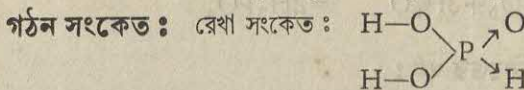 গঠন সংকেত : রেখা সংকেত : H—O
P
O
H—O
H